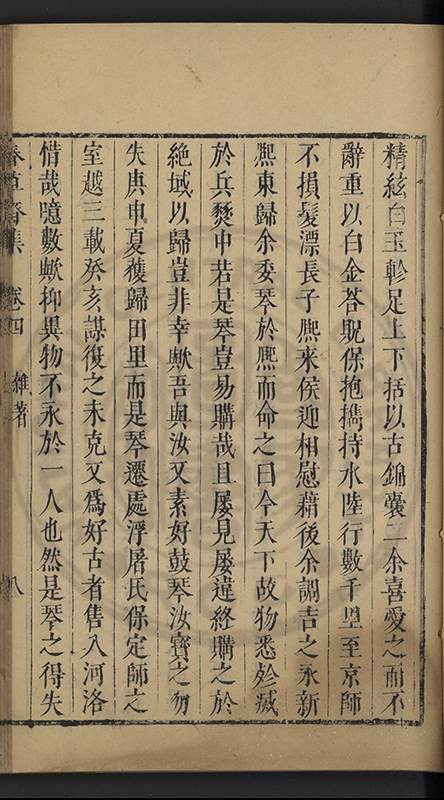 精絃白玉軫足上下括以古錦囊二余喜愛之而不
辭重以白金荅貺保抱擕持水陸行數千里至京師
不損髮漂長子熈來俟迎相慰藉後余調吉之永新
熈東歸余委琴於熈而命之曰今天下故物悉殄滅
於兵燹中若是琴豈易購哉且屡見屡違終購之於
絶域以歸豈非幸歟吾與汝又素好鼓琴汝寳之勿
失庚申夏獲歸田里而是琴遷處浮屠氏保定師之
室越三載癸亥謀復之未克又爲好古者售入河洛
惜哉噫數歟抑異物不永於一人也然是琴之得失
春草齋集 卷四 雜著 八